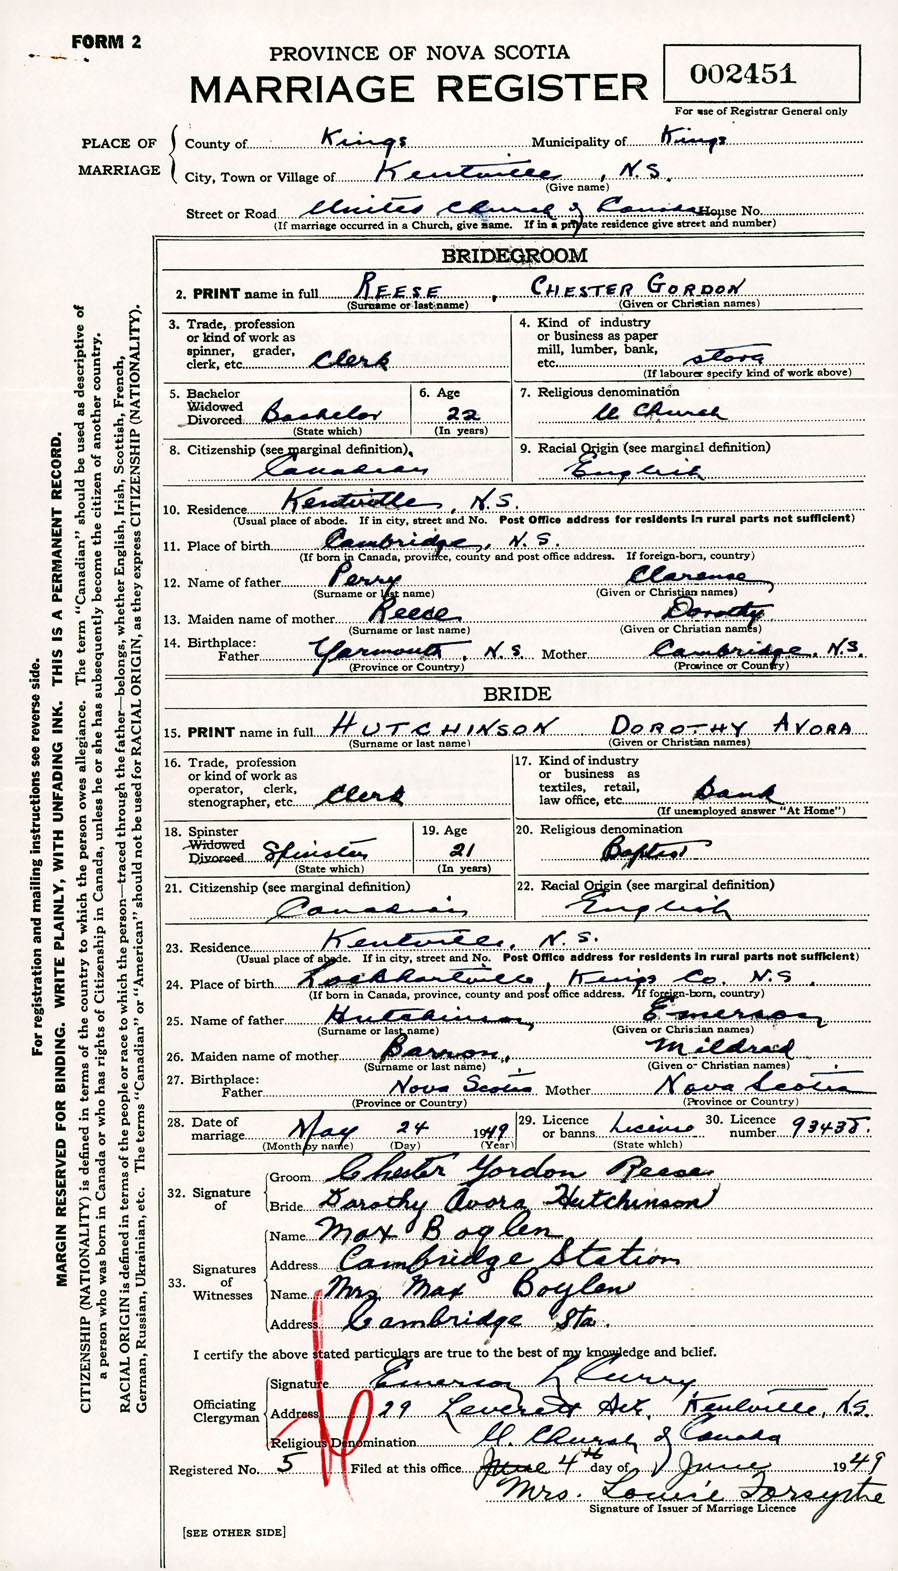 FORM 2
PROVINCE OF NOVA SCOTIA
MARRIAGE REGISTER
002451
For use of Registrar General only
PLACE OF MARRIAGE
County of Kings Municipality of Kings
City, Town or Village of Kentville, N.S.
(Give name)
Street or Road United Church of Canada House No.
(If marriage occurred in a Church, give name. If in a private residence give street and number)
BRIDEGROOM
2. PRINT name in full REESE, CHESTER GORDON
(Surname or last name) (Given or Christian names)
3. Trade, profession or kind of work as spinner, grader, clerk, etc. Clerk
4. Kind of industry or business as paper mill, lumber, bank, etc. store
(If labourer specify kind of work above)
5. Bachelor Widowed Divorced Bachelor
(State which)
6. Age 22
(In years)
7. Religious denomination U Church
8. Citizenship (see marginal definition) Canadian
9. Racial Origin (see marginal definition) English
10. Residence Kentville, N.S.
(Usual place of abode. If in city, street and No. Post Office address for residents in rural parts not sufficient)
11. Place of birth Cambridge, N.S.
(If born in Canada, province, county and post office address. If foreign-born, country)
12. Name of father Perry Clarence
(Surname or last name) (Given or Christian names)
13. Maiden name of mother Reece Dorothy
(Surname or last name) (Given or Christian names)
14. Birthplace: Father Yarmouth, N.S. Mother Cambridge, N.S.
(Province or Country) (Province or Country)
BRIDE
15. PRINT name in full HUTCHINSON DOROTHY AVORA
(Surname or last name) (Given or Christian names)
16. Trade, profession or kind of work as operator, clerk, stenographer, etc. Clerk
17. Kind of industry or business as textiles, retail, law office, etc. Bank
(If unemployed answer "At Home")
18. Spinster Widowed Divorced Spinster
(State which)
19. Age 21
(In years)
20. Religious denomination Baptist
21. Citizenship (see marginal definition) Canadian
22. Racial Origin (see marginal definition) English
23. Residence Kentville, N.S.
(Usual place of abode. If in city, street and No. Post Office address for residents in rural parts not sufficient)
24. Place of birth Lockhartville, Kings Co. N.S.
(If born in Canada, province, county and post office address. If foreign-born, country)
25. Name of father Hutchinson, Emerson
(Surname or last name) (Given or Christian names)
26. Maiden name of mother Barron, Mildred
(Surname or last name) (Given or Christian names)
27. Birthplace: Father Nova Scotia Mother Nova Scotia
(Province or Country) (Province or Country)
28. Date of marriage May 24 1949
(Month by name) (Day) (Year)
29. Licence or banns License
(State which)
30. Licence number 93438.
32. Signature of
Groom Chester Gordon Reese
Bride Dorothy Avora Hutchinson
33. Signatures of Witnesses
Name Max Boylen
Address Cambridge Station
Name Mrs Max Boylen
Address Cambridge Sta.
I certify the above stated particulars are true to the best of my knowledge and belief.
Officiating Clergyman
Signature Emerson L Curry
Address 29 Leverett Ave. Kentville, N.S.
Religious Denomination U. Church of Canada
Registered No. 5 Filed at this office June 4th day of June 1949
Mrs. Louise Forsythe
Signature of Issuer of Marriage Licence
[SEE OTHER SIDE]
For registration and mailing instructions see reverse side.
MARGIN RESERVED FOR BINDING. WRITE PLAINLY, WITH UNFADING INK. THIS IS A PERMANENT RECORD.
CITIZENSHIP (NATIONALITY) is defined in terms of the country to which the person owes allegiance. The term "Canadian" should be used as descriptive of
a person who was born in Canada or who has rights of Citizenship in Canada, unless he or she has subsequently become the citizen of another country.
RACIAL ORIGIN is defined in terms of the people or race to which the person—traced through the father—belongs, whether English, Irish, Scottish, French,
German, Russian, Ukrainian, etc. The terms "Canadian" or "American" should not be used for RACIAL ORIGIN, as they express CITIZENSHIP (NATIONALITY).